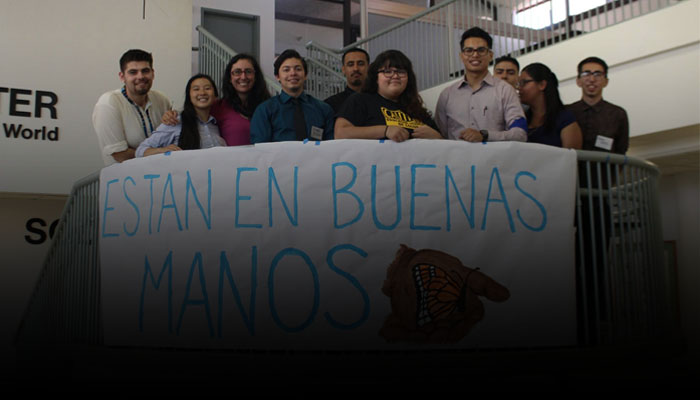 TER
World
SO
ESTAN EN BUENAS
MANOS